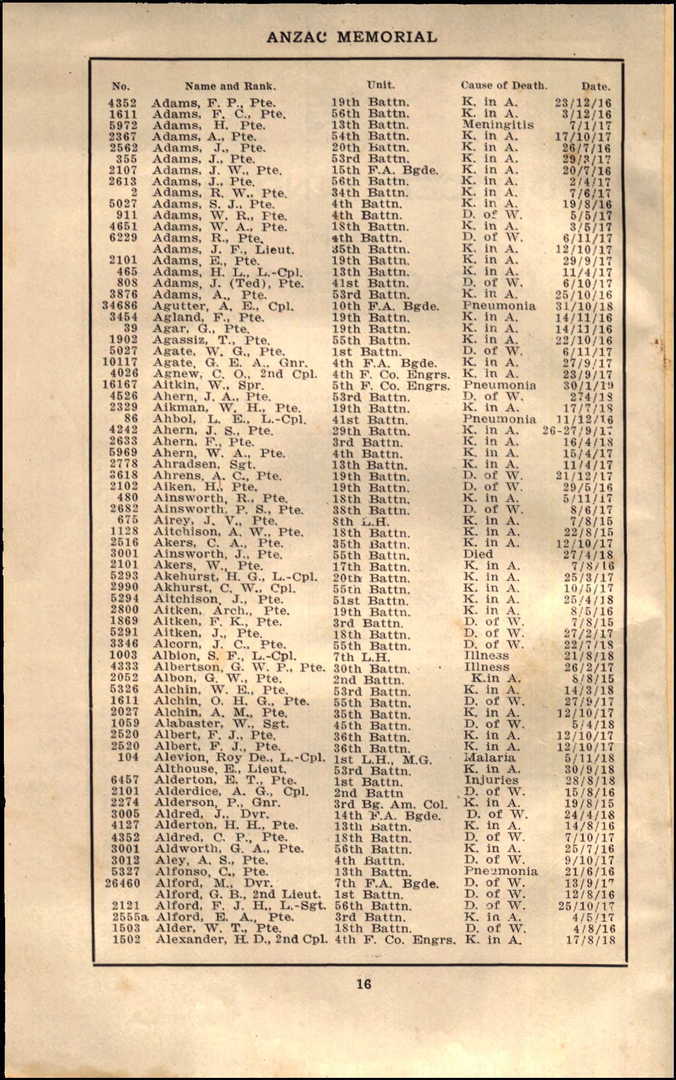 ANZAC MEMORIAL
No. Name and Rank. Unit. Cause of Death. Date.
4352 Adams, F. P., Pte. 19th Battn. K. in A. 23/12/16
1611 Adams, F. C., Pte. 56th Battn. K. in A. 3/12/16
5972 Adams, H. Pte. 13th Battn. Meningitis 7/1/17
2367 Adams, A., Pte. 54th Battn. K. in A. 17/10/17
2562 Adams, J., Pte. 20th Battn. K. in A. 26/7/16
355 Adams, J., Pte. 53rd Battn. K. in A. 29/3/17
2107 Adams, J. W., Pte. 15th F.A. Bgde. K. in A. 20/7/16
2613 Adams, J., Pte. 56th Battn. K. in A. 2/4/17
2 Adams, R. W., Pte. 34th Battn. K. in A. 7/6/17
5027 Adams, S. J., Pte. 4th Battn. K. in A. 19/8/16
911 Adams, W. R., Pte. 4th Battn. D. of W. 5/5/17
4651 Adams, W. A., Pte. 18th Battn. K. in A. 3/5/17
6229 Adams, R., Pte. 4th Battn. D. of W. 6/11/17
Adams, J. F., Lieut. 35th Battn. K. in A. 12/10/17
2101 Adams, E., Pte. 19th Battn. K. in A. 29/9/17
465 Adams, H. L., L.-Cpl. 13th Battn. K. in A. 11/4/17
808 Adams, J. (Ted), Pte. 41st Battn. D. of W. 6/10/17
3876 Adams, A., Pte. 53rd Battn. K. in A. 25/10/16
34686 Agutter, A. E., Cpl. 10th F.A. Bgde. Pneumonia 31/10/18
3454 Agland, F., Pte. 19th Battn. K. in A. 14/11/16
39 Agar, G., Pte. 19th Battn. K. in A. 14/11/16
1902 Agassiz, T., Pte. 55th Battn. K. in A. 22/10/16
5027 Agate, W. G., Pte. 1st Battn. D. of W. 6/11/17
10117 Agate, G. E. A., Gnr. 4th F.A. Bgde. K. in A. 27/9/17
4026 Agnew, C. O., 2nd Cpl. 4th F. Co. Engrs. K. in A. 23/9/17
16167 Aitkin, W., Spr. 5th F. Co. Engrs. Pneumonia 30/1/19
4526 Ahern, J. A., Pte. 53rd Battn. D. of W. 274/18
2329 Aikman, W. H., Pte. 19th Battn. K. in A. 17/7/18
86 Ahbol, L. E., L.-Cpl. 41st Battn. Pneumonia 11/12/16
4242 Ahern, J. S., Pte. 29th Battn. K. in A. 26-27/9/17
2633 Ahern, F., Pte. 3rd Battn. K. in A. 16/4/18
5969 Ahern, W. A., Pte. 4th Battn. K. in A. 15/4/17
2778 Ahradsen, Sgt. 13th Battn. K. in A. 11/4/17
3618 Ahrens, A. C., Pte. 19th Battn. D. of W. 21/12/17
2102 Aiken, H., Pte. 19th Battn. D. of W. 29/5/16
480 Ainsworth, R., Pte. 18th Battn. K. in A. 5/11/17
2682 Ainsworth, P. S., Pte. 38th Battn. D. of W. 8/6/17
675 Airey, J. V., Pte. 8th L.H. K. in A. 7/8/15
1128 Aitchison, A. W., Pte. 18th Battn. K. in A. 22/8/15
2516 Akers, C. A., Pte. 35th Battn. K. in A. 12/10/17
3001 Ainsworth, J., Pte. 55th Battn. Died 27/4/18
2101 Akers, W., Pte. 17th Battn. K. in A. 7/8/16
5293 Akehurst, H. G., L.-Cpl. 20th Battn. K. in A. 25/3/17
2990 Akhurst, C. W., Cpl. 55th Battn. K. in A. 10/5/17
5294 Aitchison, J., Pte. 51st Battn. K. in A. 25/4/18
2800 Aitken, Arch., Pte. 19th Battn. K. in A. 8/5/16
1869 Aitken, F. K., Pte. 3rd Battn. D. of W. 7/8/15
5291 Aitken, J., Pte. 18th Battn. D. of W. 27/2/17
3346 Alcorn, J. C., Pte. 55th Battn. D. of W. 22/7/18
1003 Albion, S. F., L.-Cpl. 7th L.H. Illness 21/8/18
4333 Albertson, G. W. P., Pte. 30th Battn. Illness 26/2/17
2052 Albon, G. W., Pte. 2nd Battn. K.in A. 8/8/15
5326 Alchin, W. E., Pte. 53rd Battn. K. in A. 14/3/18
1611 Alchin, O. H. G., Pte. 55th Battn. D. of W. 27/9/17
2027 Alchin, A. M., Pte. 35th Battn. K. in A. 12/10/17
1059 Alabaster, W., Sgt. 45th Battn. D. of W. 5/4/18
2520 Albert, F. J., Pte. 36th Battn. K. in A. 12/10/17
2520 Albert, F. J., Pte. 36th Battn. K. in A. 12/10/17
104 Alevion, Roy De., L.-Cpl. 1st L.H., M.G. Malaria 5/11/18
Althouse, E., Lieut. 53rd Battn. K. in A. 30/9/18
6457 Alderton, E. T., Pte. 1st Battn. Injuries 28/8/18
2101 Alderdice, A. G., Cpl. 2nd Battn D. of W. 15/8/16
2274 Alderson, P., Gnr. 3rd Bg. Am. Col. K. in A. 19/8/15
3005 Aldred, J., Dvr. 14th F.A. Bgde. D. of W. 24/4/18
4127 Alderton, H. H., Pte. 13th Battn. K. in A. 14/8/16
4352 Aldred, C. P., Pte. 18th Battn. D. of W. 7/10/17
3001 Aldworth, G. A., Pte. 56th Battn. K. in A. 25/7/16
3012 Aley, A. S., Pte. 4th Battn. D. of W. 9/10/17
5327 Alfonso, C., Pte. 13th Battn. Pneumonia 21/6/16
26460 Alford, M., Dvr. 7th F.A. Bgde. D. of W. 13/9/17
Alford, G. B., 2nd Lieut. 1st Battn. D. of W. 12/8/16
2121 Alford, F. J. H., L.-Sgt. 56th Battn. D. of W. 25/10/17
2555a Alford, E. A., Pte. 3rd Battn. K. in A. 4/5/17
1503 Alder, W. T., Pte. 18th Battn. D. of W. 4/8/16
1502 Alexander, H. D., 2nd Cpl. 4th F. Co. Engrs. K. in A. 17/8/18
16